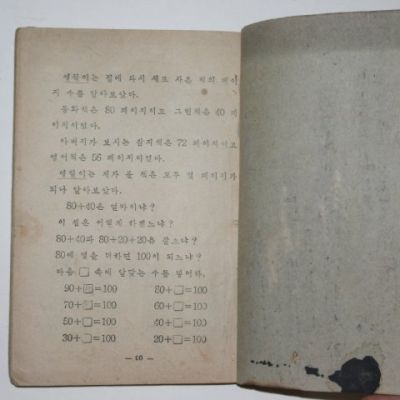 영월이는 집에 와서 새로 사온 책의 페이
지 수를 알아보았다.
동화책은 80 페이지이고 그림책은 40 페
이지이었다.
아버지가 보시는 잡지책은 72 페이지이고
영어책은 56 페이지이었다.
영월이는 제가 볼 책은 모두 몇 페이지가
되나 알아보았다.
80+40은 얼마이냐?
이 셈은 어떻게 하겠느냐?
80+40과 80+20+20은 같으냐?
80에 몇을 더하면 100이 되느냐?
다음 □ 속에 알맞는 수를 넣어라.
90+□=100 80+□=100
70+□=100 60+□=100
50+□=100 40+□=100
30+□=100 20+□=100
— 10 —